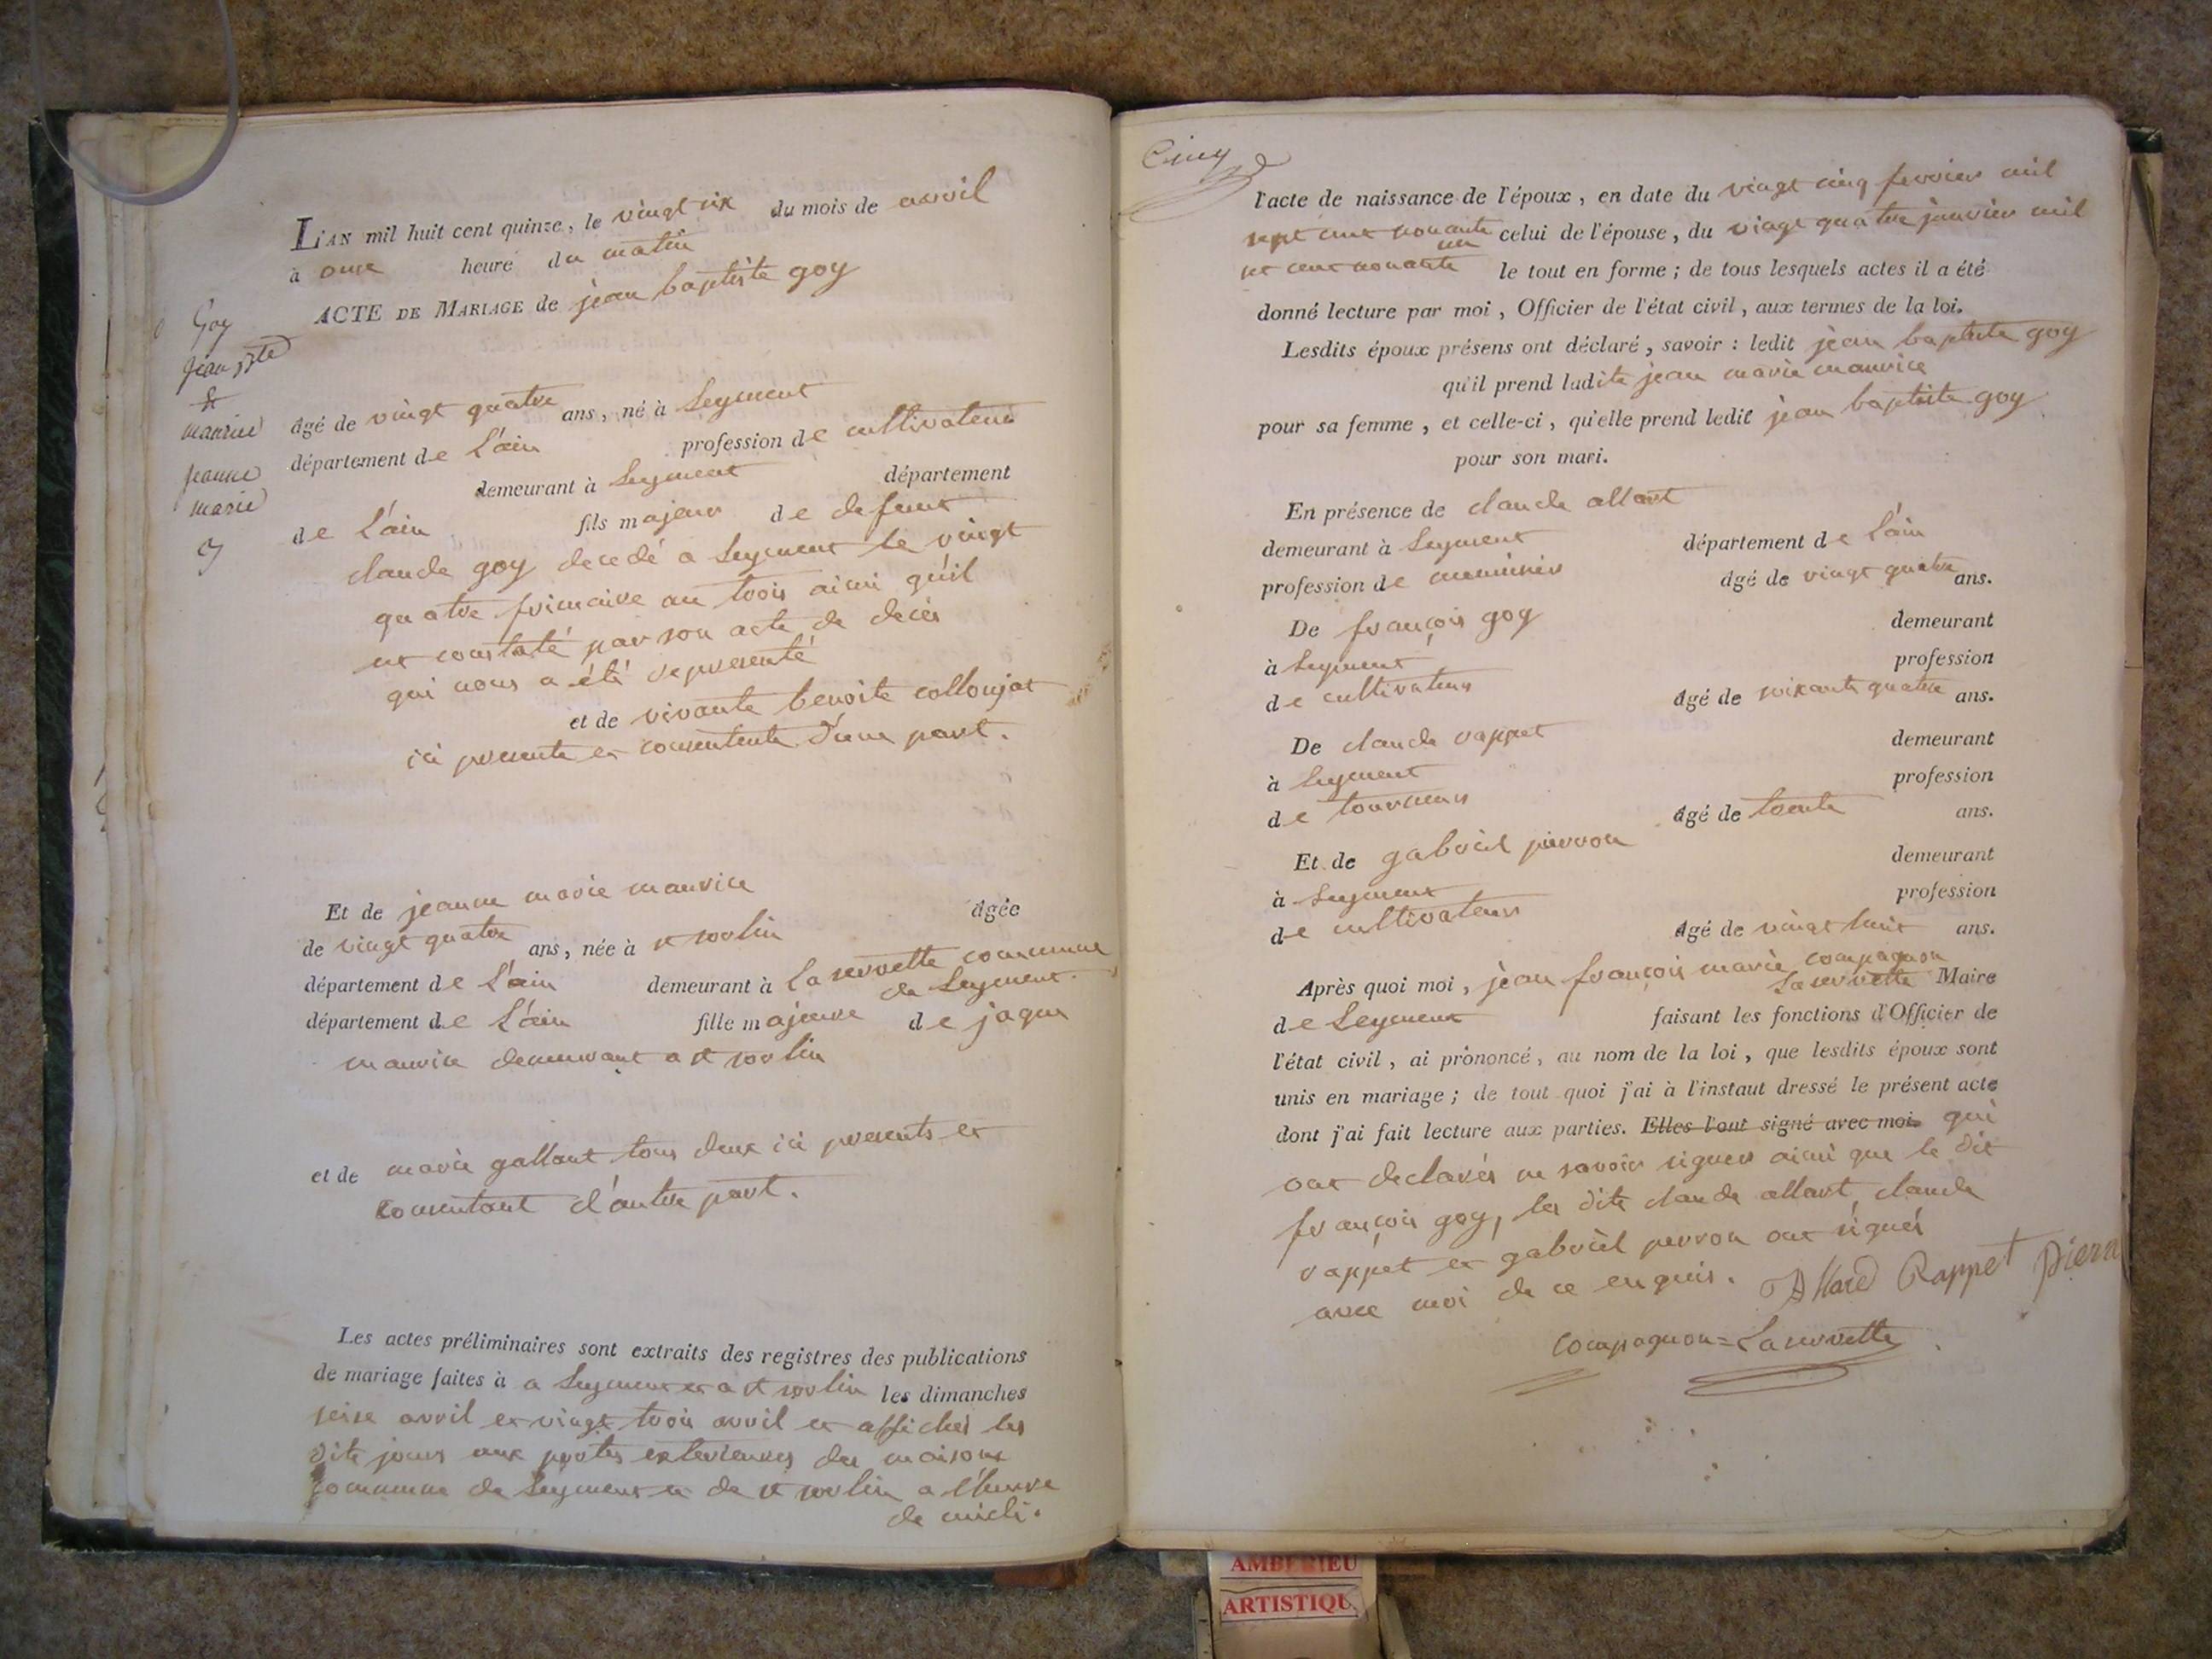 Goy
jean Bte
&
maurice
jeanne
marie
L'AN mil huit cent quinze, le vingt six du mois de avril
à onze heure du matin
ACTE DE MARIAGE de jean baptiste goy
âgé de vingt quatre ans, né à Leyment
département de L'ain profession de cultivateur
demeurant à Leyment département
de L'ain fils majeur de defunt
claude goy decedé a Leyment le vingt
quatre frimaire an trois ainsi qu'il
est constaté par son acte de decès
qui nous a été representé
et de vivante benoite collonjat
ici presente et consentente d'une part.
Et de jeanne marie maurice âgée
de vingt quatre ans, née à st sorlin
département de L'ain demeurant à La servette commune
de Leyment.
département de L'ain fille majeure de jaque
maurice demeurant a st sorlin
et de marie gallant tous deux ici presents et
consentant d'autre part.
Les actes préliminaires sont extraits des registres des publications
de mariage faites à a Leyment et a st sorlin les dimanches
seise avril et vingt trois avril et affichés les
dits jours aux portes exterieures des maisons
commune de Leyment et de st sorlin a l'heure
de midi.
Cinq
l'acte de naissance de l'époux, en date du vingt cinq fevrier mil
sept cent nonante un celui de l'épouse, du vingt quatre janvier mil
set cent nonante le tout en forme; de tous lesquels actes il a été
donné lecture par moi, Officier de l'état civil, aux termes de la loi.
Lesdits époux présens ont déclaré, savoir : ledit jean baptiste goy
qu'il prend ladite jean marie maurice
pour sa femme, et celle-ci, qu'elle prend ledit jean baptiste goy
pour son mari.
En présence de claude allart
demeurant à Leyment département de L'ain
profession de menuisier âgé de vingt quatre ans.
De françois goy demeurant
à Leyment profession
de cultivateur âgé de soixante quatre ans.
De claude rappet demeurant
à Leyment profession
de tourneur âgé de trente ans.
Et de gabriel pierron demeurant
à Leyment profession
de cultivateur âgé de vingt huit ans.
Après quoi moi, jean françois marie compagnon
La servette Maire
de Leyment faisant les fonctions d'Officier de
l'état civil, ai prononcé, au nom de la loi, que lesdits époux sont
unis en mariage; de tout quoi j'ai à l'instant dressé le présent acte
dont j'ai fait lecture aux parties. Elles l'ont signé avec moi. qui
ont declarés ne savoir signer ainsi que le dit
françois goy, les dits claude allart, claude
rappet et gabriel perron ont signés
avec moi de ce enquis. Allard Rappet Piero
compagnon=Laservette
AMBERIEU
ARTISTIQU